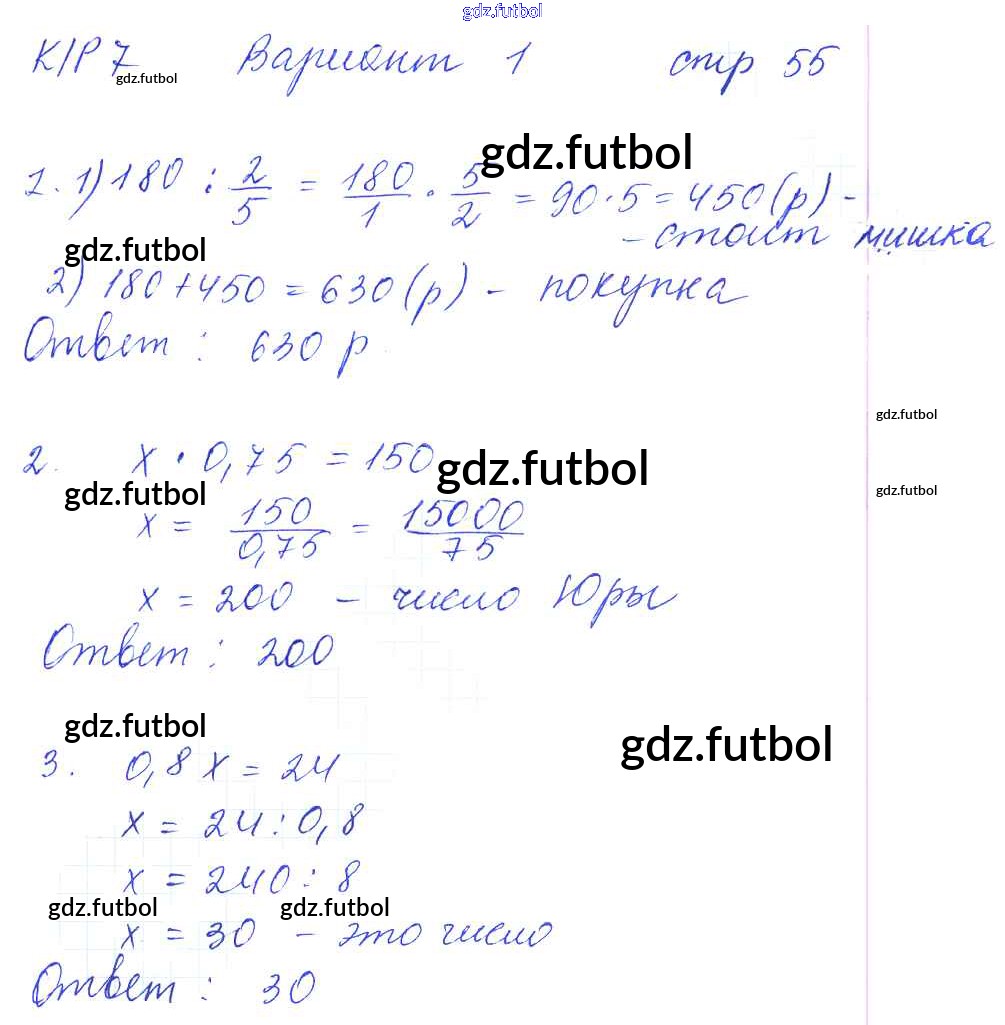 gdz.futbol
К/Р 7 Вариант 1 стр 55
gdz.futbol
gdz.futbol
1. 1) 180 : 2/5 = 180/1 · 5/2 = 90 · 5 = 450 (р) -
- стоит мишка
gdz.futbol
2) 180 + 450 = 630 (р) - покупка
Ответ : 630 р
gdz.futbol
2. x · 0,75 = 150
gdz.futbol
gdz.futbol
gdz.futbol
x = 150/0,75 = 15000/75
x = 200 - число Юры
Ответ : 200
gdz.futbol
gdz.futbol
3. 0,8 x = 24
x = 24 : 0,8
x = 240 : 8
gdz.futbol gdz.futbol
x = 30 - это число
Ответ : 30